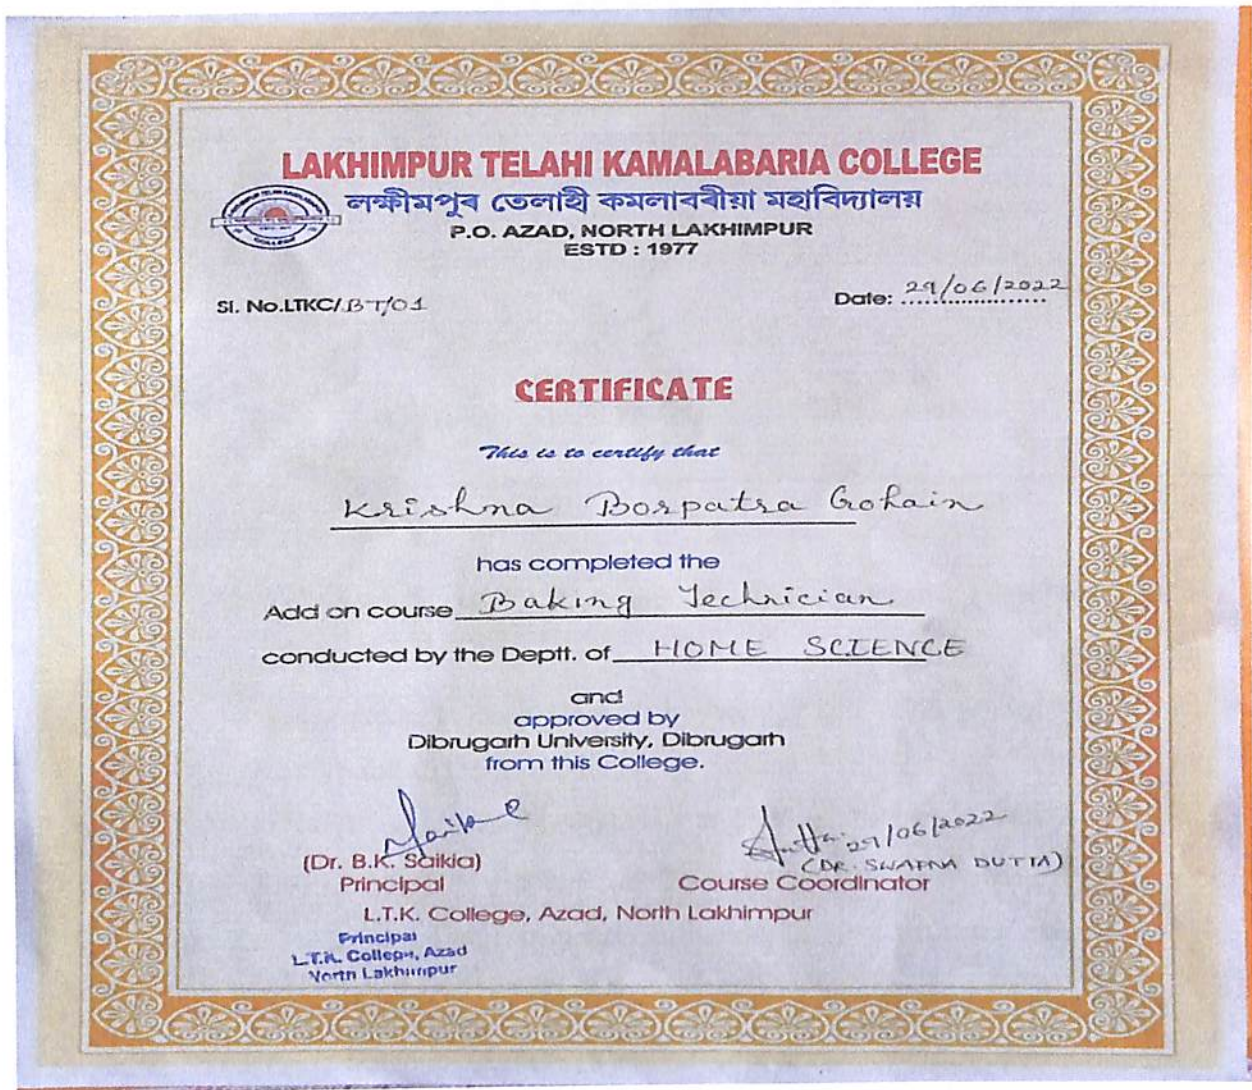 LAKHIMPUR TELAHI KAMALABARIA COLLEGE
লক্ষীমপুৰ তেলাহী কমলাবৰীয়া মহাবিদ্যালয়
P.O. AZAD, NORTH LAKHIMPUR
ESTD : 1977
Sl. No.LTKC/BT/01
Date: 29/06/2022
CERTIFICATE
This is to certify that
Krishna Borpatra Gohain
has completed the
Add on course Baking Technician
conducted by the Deptt. of HOME SCIENCE
and
approved by
Dibrugarh University, Dibrugarh
from this College.
29/06/2022
(Dr. B.K. Saikia)
(DR. SWAPNA DUTTA)
Principal
Course Coordinator
L.T.K. College, Azad, North Lakhimpur
Principal
L.T.K. College, Azad
North Lakhimpur